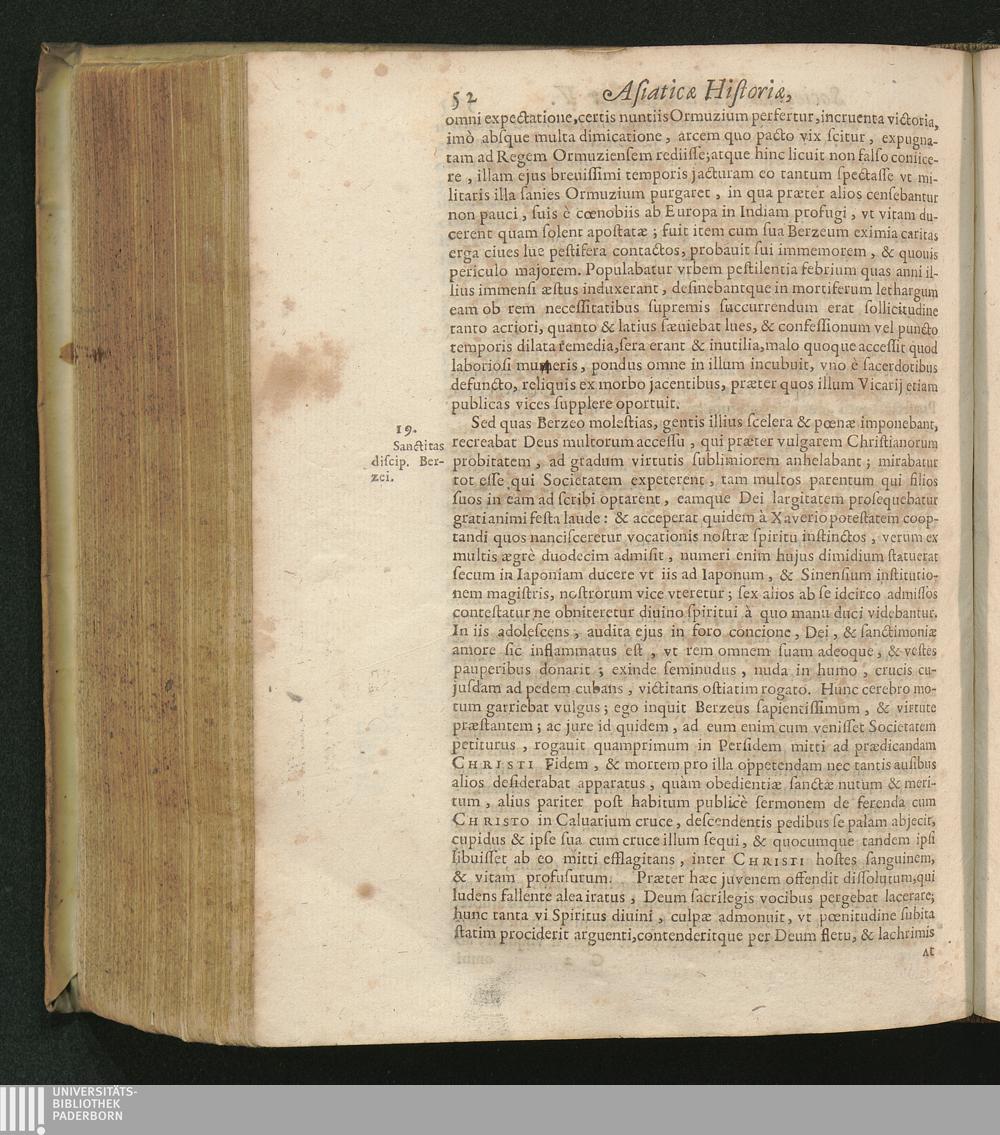 52
Aſiaticæ Hiſtoriæ,
omni expectatione,certis nuntiis Ormuzium perfertur,incruenta victoria,
imò abſque multa dimicatione, arcem quo pacto vix ſcitur, expugna-
tam ad Regem Ormuzienſem rediiſſe;atque hinc licuit non falſo coniice-
re, illam ejus breuiſſimi temporis jacturam eo tantum ſpectaſſe vt mi-
litaris illa ſanies Ormuzium purgaret, in qua præter alios cenſebantur
non pauci, ſuis è cœnobiis ab Europa in Indiam profugi, vt vitam du-
cerent quam ſolent apoſtatæ; fuit item cum ſua Berzeum eximia caritas
erga ciues lue peſtifera contactos, probauit ſui immemorem, & quouis
periculo majorem. Populabatur vrbem peſtilentia febrium quas anni il-
lius immenſi æſtus induxerant, deſinebantque in mortiferum lethargum
eam ob rem neceſſitatibus ſupremis ſuccurrendum erat ſollicitudine
tanto acriori, quanto & latius ſæuiebat lues, & confeſſionum vel puncto
temporis dilata remedia,ſera erant & inutilia,malo quoque acceſſit quod
laborioſi muneris, pondus omne in illum incubuit, vno è ſacerdotibus
defuncto, reliquis ex morbo jacentibus, præter quos illum Vicarij etiam
publicas vices ſupplere oportuit.
19.
Sanctitas
diſcip. Ber-
zei.
Sed quas Berzeo moleſtias, gentis illius ſcelera & pœnæ imponebant,
recreabat Deus multorum acceſſu, qui præter vulgarem Chriſtianorum
probitatem, ad gradum virtutis ſublimiorem anhelabant; mirabatur
tot eſſe qui Societatem expeterent, tam multos parentum qui filios
ſuos in eam adſcribi optarent, eamque Dei largitatem proſequebatur
grati animi feſta laude: & acceperat quidem à Xaverio poteſtatem coop-
tandi quos nanciſceretur vocationis noſtræ ſpiritu inſtinctos, verum ex
multis ægrè duodecim admiſit, numeri enim hujus dimidium ſtatuerat
ſecum in Iaponiam ducere vt iis ad Iaponum, & Sinenſium inſtitutio-
nem magiſtris, noſtrorum vice vteretur; ſex alios ab ſe idcirco admiſſos
conteſtatur ne obniteretur diuino ſpiritui à quo manu duci videbantur.
In iis adoleſcens, audita ejus in foro concione, Dei, & ſanctimoniæ
amore ſic inflammatus eſt, vt rem omnem ſuam adeoque, & veſtes
pauperibus donarit; exinde ſeminudus, nuda in humo, crucis cu-
juſdam ad pedem cubans, victitans oſtiatim rogato. Hunc cerebro mo-
tum garriebat vulgus; ego inquit Berzeus ſapientiſſimum, & virtute
præſtantem; ac jure id quidem, ad eum enim cum veniſſet Societatem
petiturus, rogauit quamprimum in Perſidem mitti ad prædicandam
CHRISTI Fidem, & mortem pro illa oppetendam nec tantis auſibus
alios deſiderabat apparatus, quàm obedientiæ ſanctæ nutum & meri-
tum, alius pariter poſt habitum publicè ſermonem de ferenda cum
CHRISTO in Caluarium cruce, deſcendentis pedibus ſe palam abjecit,
cupidus & ipſe ſua cum cruce illum ſequi, & quocumque tandem ipſi
libuiſſet ab eo mitti efflagitans, inter CHRISTI hoſtes ſanguinem,
& vitam profuſurum. Præter hæc juvenem offendit diſſolutum,qui
ludens fallente alea iratus, Deum ſacrilegis vocibus pergebat lacerare;
hunc tanta vi Spiritus diuini, culpæ admonuit, vt pœnitudine ſubita
ſtatim prociderit arguenti,contenderitque per Deum fletu, & lachrimis
at
UNIVERSITÄTS-
BIBLIOTHEK
PADERBORN